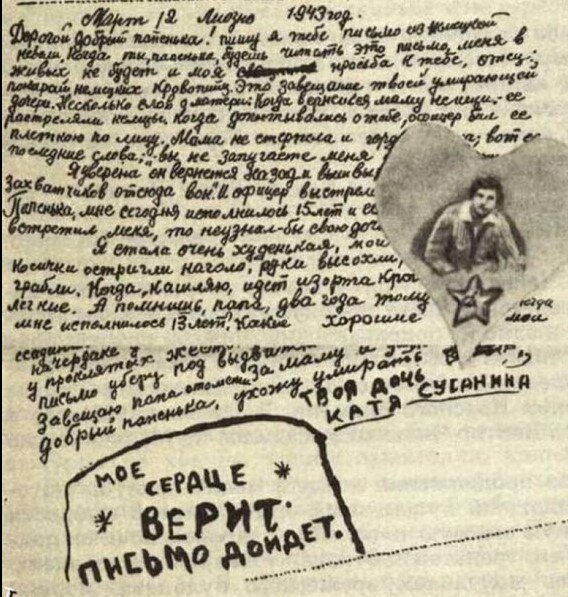 Март 12 Лиозно 1943 год.
Дорогой добрый папенька! пишу я тебе письмо из немецкой
неволи. Когда ты, папенька, будешь читать это письмо, меня в
живых не будет и моя просьба к тебе, отец:
покарай немецких кровопийц. Это завещание твоей умирающей
дочери. Несколько слов о матери: Когда вернешься маму не ищи. ее
растреляли немцы. Когда допытывались о тебе, офицер бил ее
плеткою по лицу. Мама не стерпела и гордо вот ее
последние слова: „вы не запугаете меня
Я уверена он вернется назад и вышвыр
захватчиков отсюда вон." И офицер выстрел
Папенька, мне сегодня исполнилось 15 лет и если
встретил меня, то неузнал-бы свою доч
Я стала очень худенькая, мои
косички остригли наголо, руки высохли,
грабли. Когда кашляю, идет изорта кро
легкие. А помнишь, папа, два года тому когда
мне исполнилось 13 лет? Какие хорошие мои
начердаке
у проклятых
письмо уберу под
Завещаю папа отомсти за маму и
добрый папенька, ухожу умирать
ТВОЯ ДОЧЬ
КАТЯ СУСАНИНА
МОЕ
СЕРДЦЕ
ВЕРИТ.
ПИСЬМО ДОЙДЕТ.